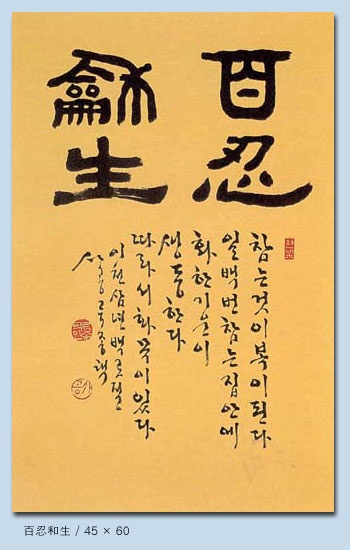 百忍
龢生
참는것이복이된다
일백번참는집안에
화한기운이
생동한다
따라서화목이있다
이천삼년백로절
百忍和生 / 45 × 60